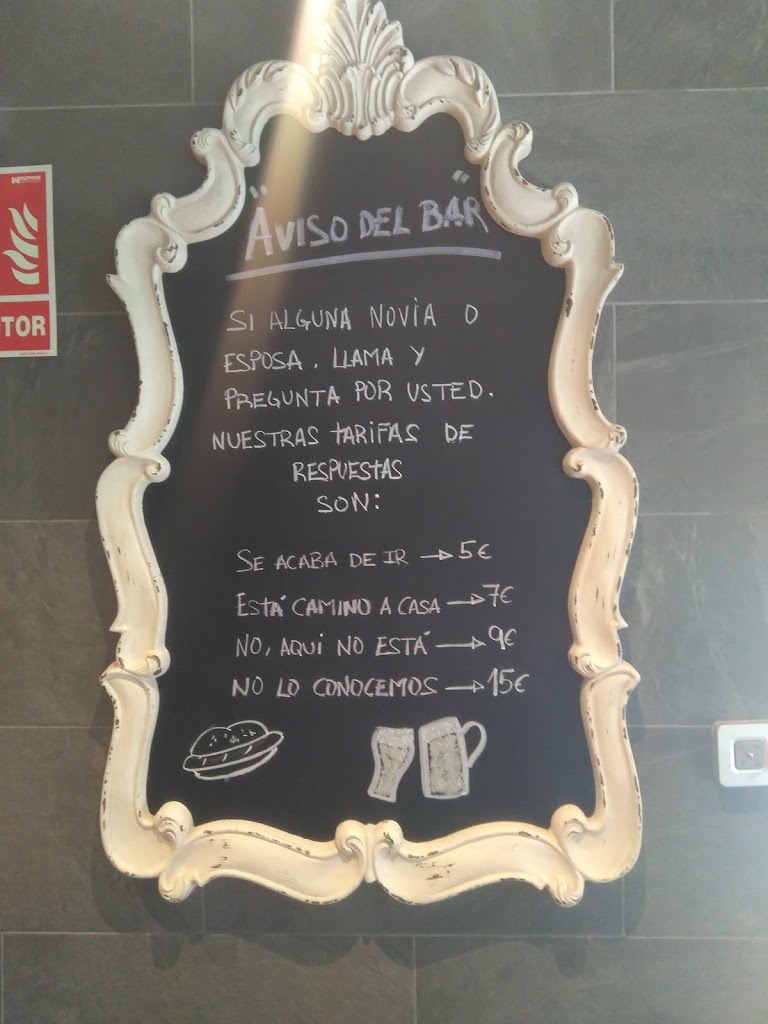 "AVISO DEL BAR"
SI ALGUNA NOVIA O
ESPOSA, LLAMA Y
PREGUNTA POR USTED.
NUESTRAS TARIFAS DE
RESPUESTAS
SON:
SE ACABA DE IR → 5€
ESTÁ CAMINO A CASA → 7€
NO, AQUÍ NO ESTÁ → 9€
NO LO CONOCEMOS → 15€
TOR